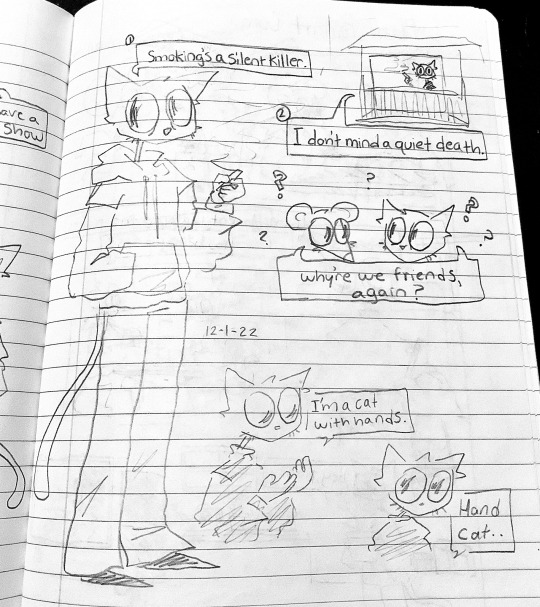 ①
Smoking's a Silent Killer.
②
I don't mind a quiet death.
ave a
Show
? ? ? ? ?
why're we friends,
again?
12-1-22
I'm a cat
with hands.
Hand
cat..